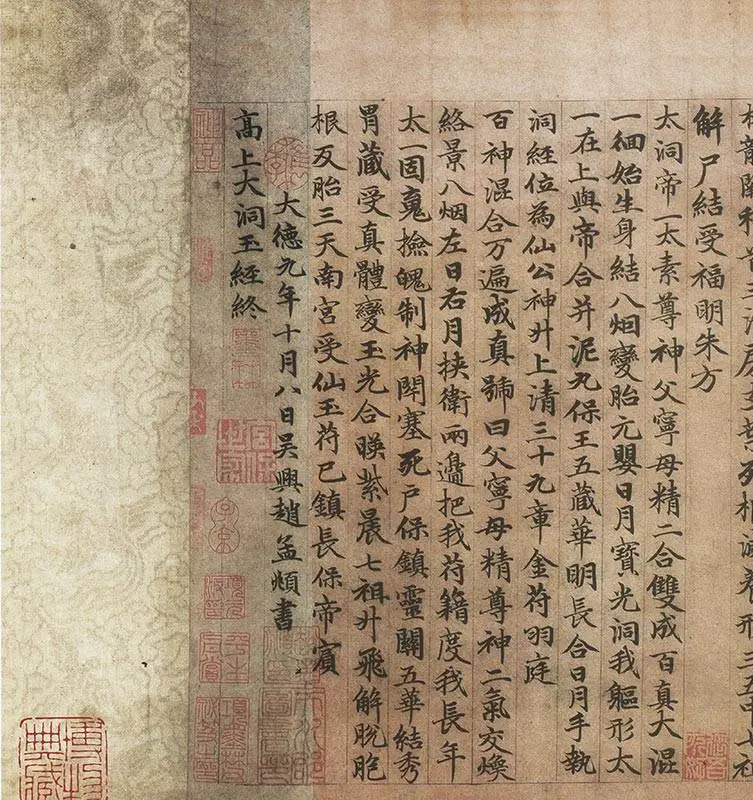 解尸結受福明朱方
太洞帝一太素尊神父寧母精二合雙成百真大混
一徊始生身結八烟變胎元嬰日月寶光洞我軀形太
一在上與帝合并泥丸保王五藏華明長合日月手執
洞經位為仙公神升上清三十九章金苻羽庭
百神混合万遍成真號曰父寧母精尊神二氣交煥
絡景八烟左日右月挟衛兩邊把我苻籍度我長年
太一固䰟撿魄制神閉塞死戶保鎮靈關五華結秀
胃藏受真體變玉光合暎紫晨七祖升飛解脫胞
根反胎三天南宮受仙玉苻已鎮長保帝賓
大德九年十月八日吳興趙孟頫書
高上大洞玉經終
博物
典藏